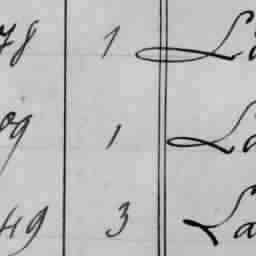 78 1 La
09 1 La
49 3 La